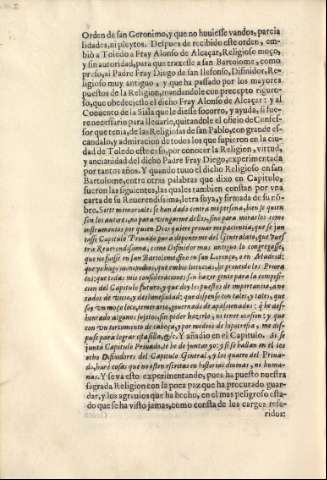 Orden de san Geronimo, y que no huuiesse vandos, parcia
lidades, ni pleytos. Despues de recibido este orden, em-
biò a Toledo a Fray Alonso de Alcaçar, Religioso moço,
y sin autoridad, para que traxesse a san Bartolome, como
preso, al Padre Fray Diego de san Ilefonso, Difinidor, Re-
ligioso muy antiguo, y que ha passado por los mayores
puestos de la Religion, mandandole con precepto riguro-
so, que obedeciesse el dicho Fray Alonso de Alcaçar: y al
Conuento de la Sisla que le diesse socorro, y ayuda, si fue-
re necessario para lleuarlo, quitandole el oficio de Confes-
sor que tenia, de las Religiosas de san Pablo, con grande es-
candalo, y admiracion de todos los que supieron en la ciu-
dad de Toledo este caso, por conocer la Religion, virtud,
y ancianidad del dicho Padre Fray Diego, experimentada
por tantos años. Y quando tuuo el dicho Religioso en san
Bartolome, entre otras palabras que dixo en Capitulo,
fueron las siguientes, las quales tambien constan por vna
carta de su Reuerendissima, letra suya, y firmada de su nõ-
bre. Siete memoriales se han dado contra mi persona, bien se quien
son los autores, no para vengarme dellos, sino para mirarlos como
instrumentos por quien Dios quiere prouar mi paciencia, que se jun
tasse Capitulo Priuado para disponerme del Generalato, que vues-
tra Reuerendissima, como Difinidor mas antiguo lo congregasse,
que no fuesse en san Bartolome sino en san Lorenço, o en Madrid:
que yo hago mis vandos, que embio loterias, a presidir los Priora-
tos: que todas mis consideraciones son hazer gente para la composi-
cion del Capitulo futuro, y que doy los puestos de importancia, ane
xados de vicios, y deshonestidad: que dispenso con tales, y tales, que
soy vn moço loco, temerario, gouernado de apassionados: que he ahi-
jurado algunos sujetos, sin poder hazerlo, ni tener ocasion: y que
con vn turumento de cabeça, y por modios de hipocresia, me dis-
puse para lograr esta silla, &c. Y añadio en el Capitulo. Si se
junta Capitulo Priuado, se ha de juntar yo: y si se hallan en el los
ocho Difinidores del Capitulo General, y los quatro del Priua-
do, harè cosas que no esten escritas en historias diuinas, ni huma-
nas. Y se va esto experimentando, pues ha puesto nuestra
sagrada Religion con la poca paz que ha procurado guar-
dar, y los agrauios que ha hecho, en el mas peligroso esta-
do que se ha visto jamas, como consta de los cargos refe-
ridos: